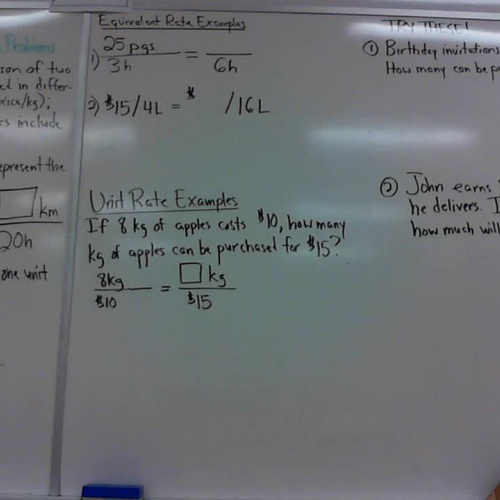 Problems
son of two
ed in differ-
price/kg);
es include
epresent the
km
20h
one unit
Equivalent Rate Examples
1) 25 pgs = ____
3h 6h
2) $15/4L = $ /16L
Unit Rate Examples
If 8 kg of apples costs $10, how many
kg of apples can be purchased for $15?
8kg = □ kg
$10 $15
TRY THESE!
① Birthday invitations
How many can be pu
② John earns
he delivers. I
how much will